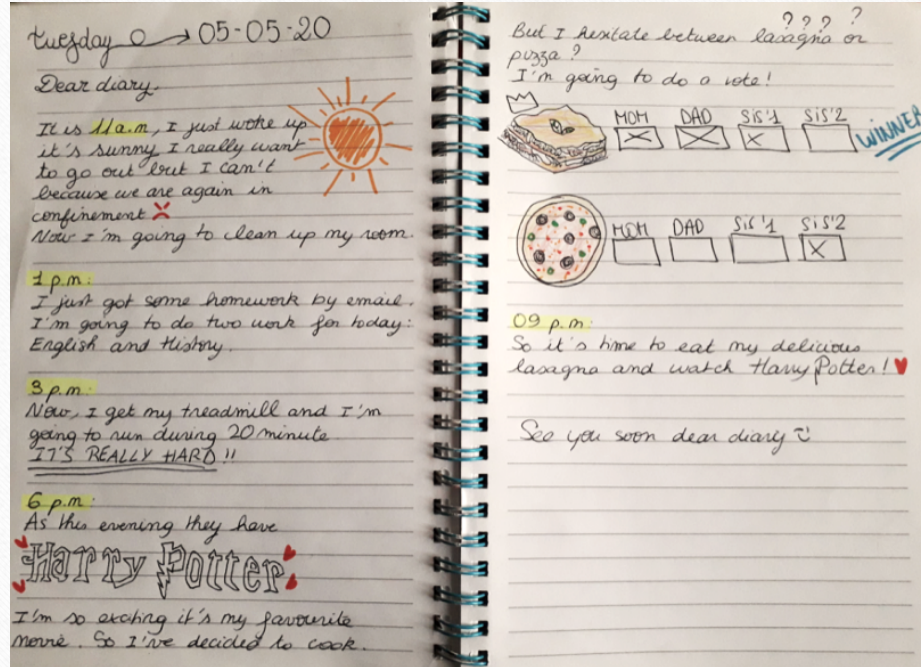 Tuesday → 05-05-20
Dear diary.
It is 11a.m, I just woke up
it's sunny I really want
to go out but I can't
because we are again in
confinement
Now I'm going to clean up my room.
1 p.m:
I just got some homework by email.
I'm going to do two work for today:
English and History.
3 p.m:
Now, I get my treadmill and I'm
going to run during 20 minute
IT'S REALLY HARD !!
6 p.m:
As this evening they have
Harry Potter
I'm so exciting it's my favourite
movie. So I've decided to cook.
? ? ? ?
But I hesitate between lasagna or
pizza ?
I'm going to do a vote!
MOM DAD SiS'1 SiS'2
WINNER
MOM DAD SiS'1 SiS'2
09 p.m:
So it's time to eat my delicious
lasagna and watch Harry Potter!
See you soon dear diary